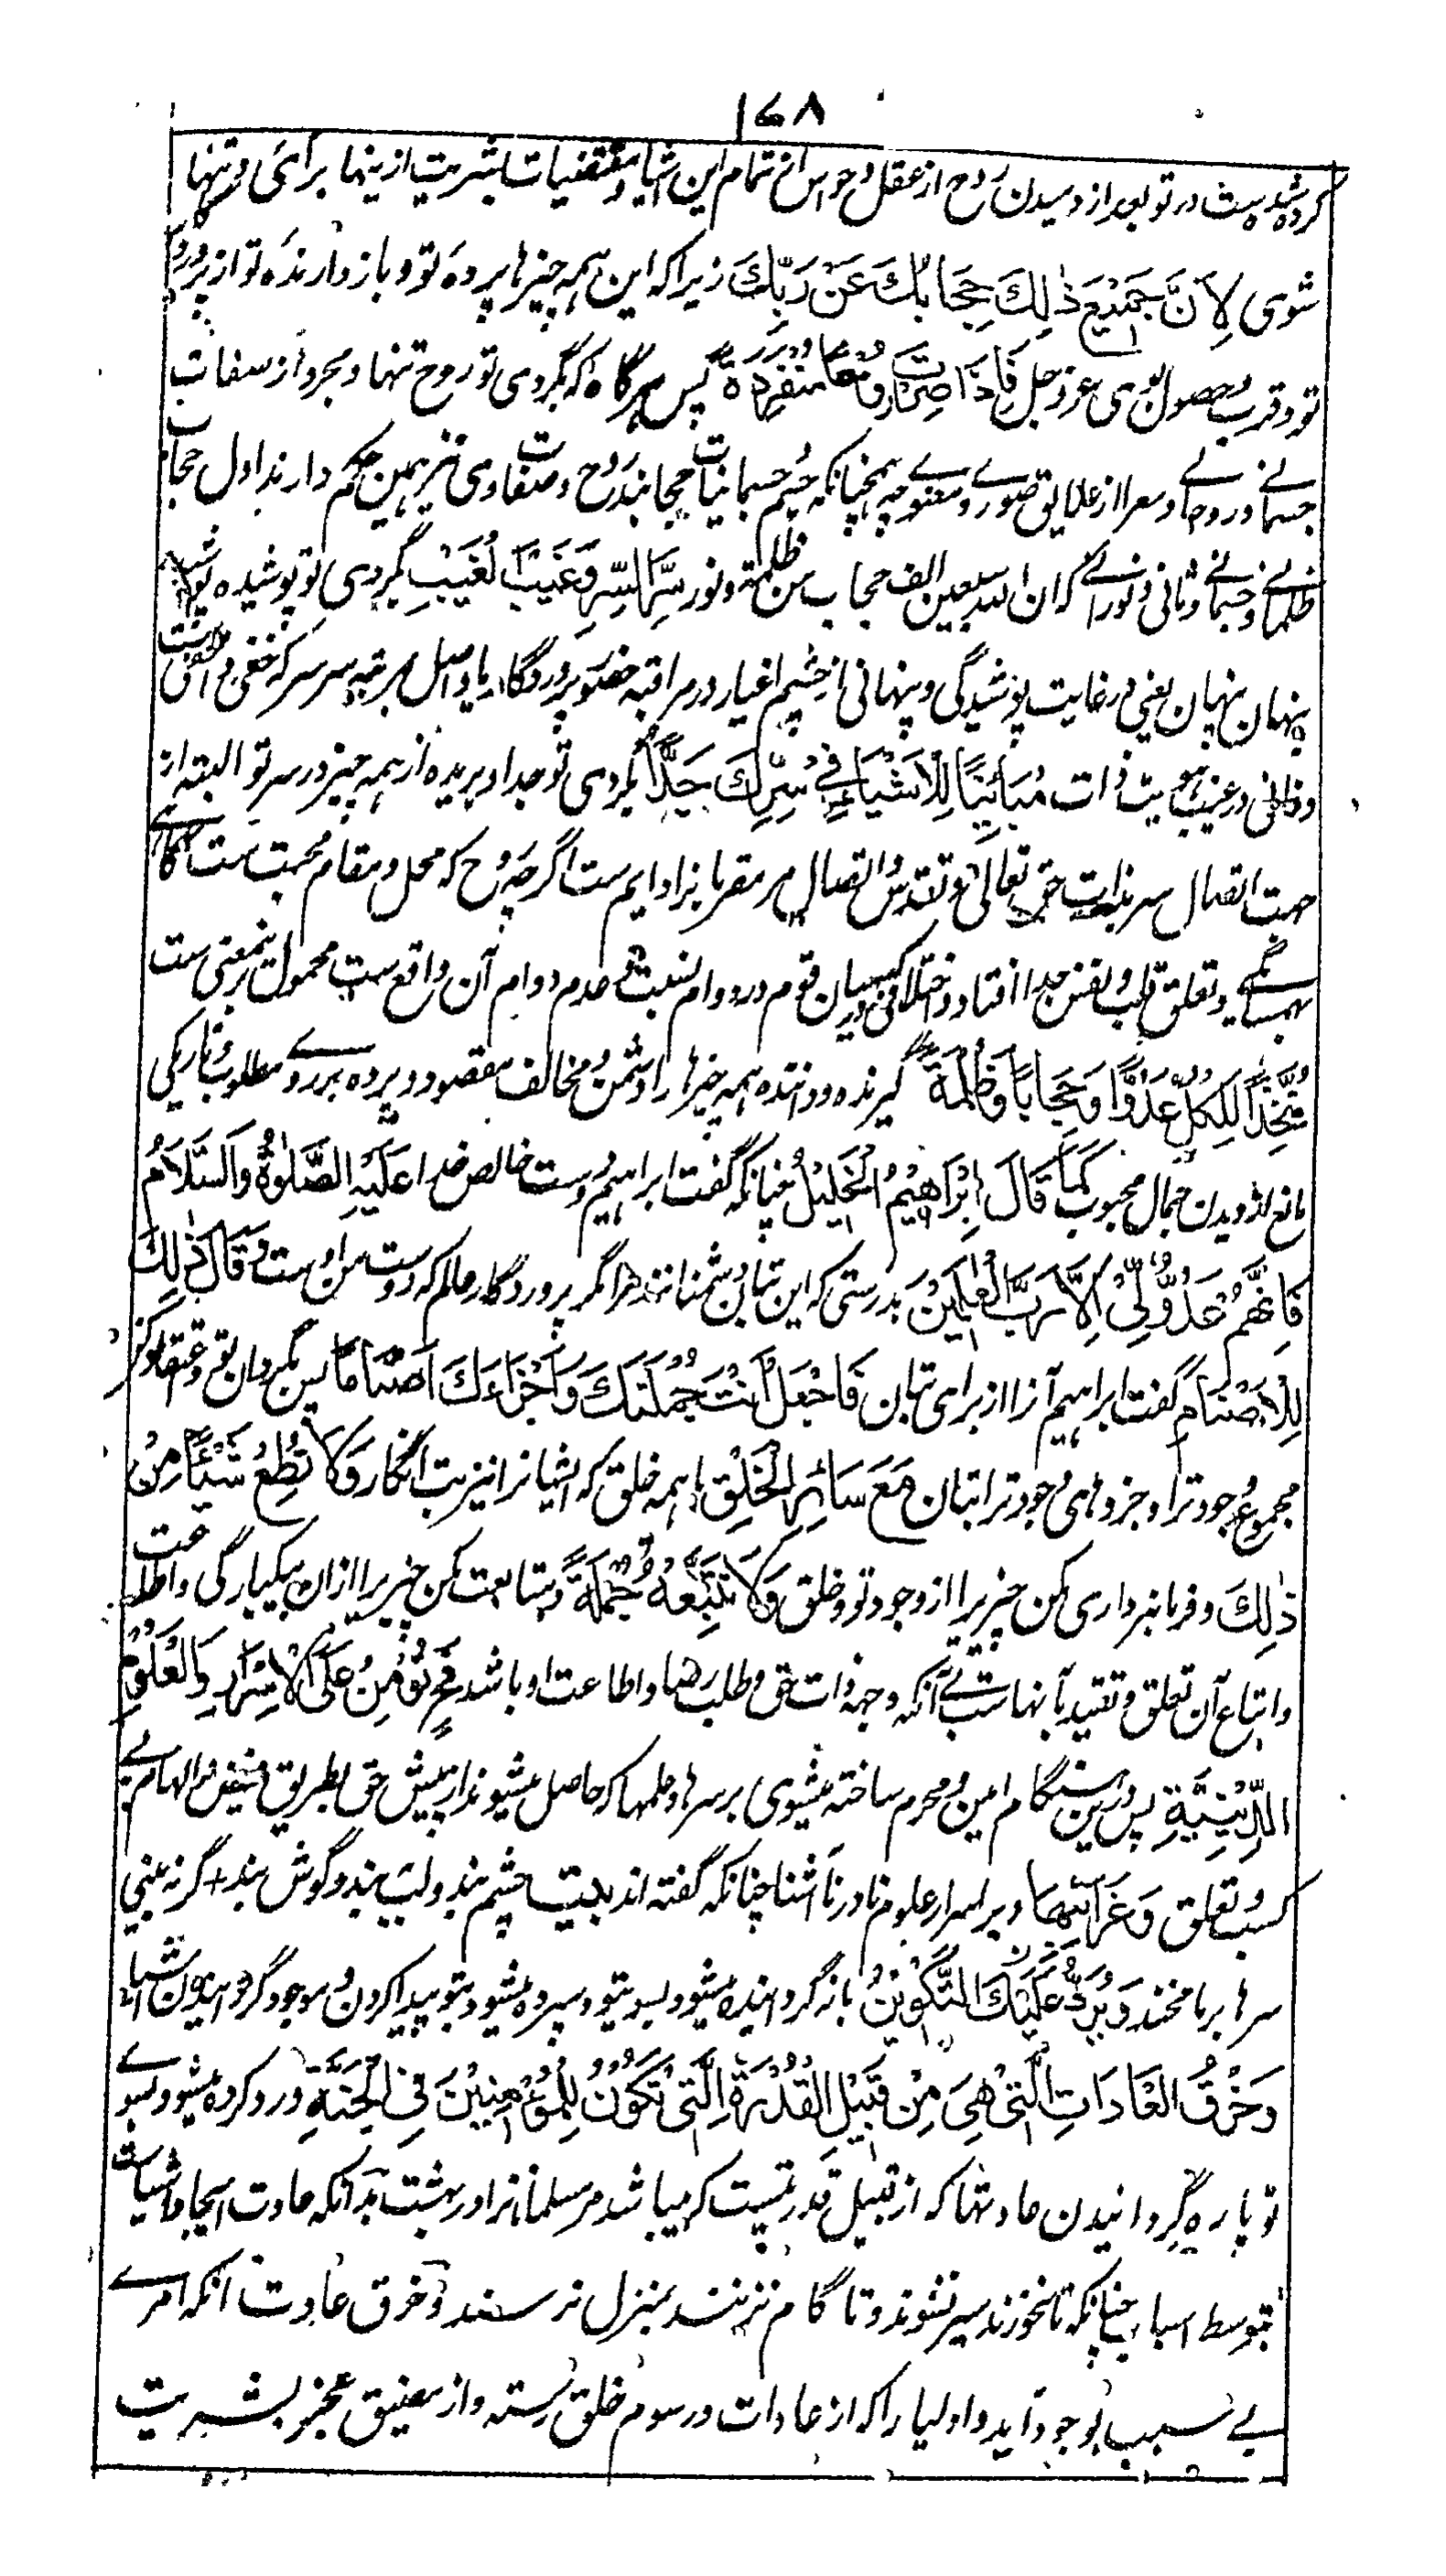 ۱۷۸
کرده شده ست در تو بعد از دمیدن روح از عقل و حواس الخ تمام این اشیا و مقتضیات بشریت ازینها برائی و تنها
شوی لِاَنَّ جَمِیْعَ ذٰلِكَ حِجَابُكَ عَنْ رَبِّكَ زیرا که این همه چیزها پردهٔ تو و باز دارندهٔ تو از پروردگار
تو و قرب و حصول بوی عز و جل فَاِذَا صِرْتَ رُوْحًا مُنْفَرِدَةً پس هرگاه که بگردی تو روح تنها و مجرد از صفات
جسمانی و روحانی و معرا از علایق صوری و معنوی چه همچنانکه جسم جسمانیات حجابند روح و صفات وی نیز همین حکم دارند اول حجاب
ظلمانی و جسمانی و ثانی نورانی که ان لله سبعین الف حجاب من ظلمة و نور سِرَّ السِّرِّ وَغَیْبَ الْغَیْبِ گردی تو پوشیده پوشیده
پنهان پنهان یعنی در غایت پوشیدگی و پنهانی از چشم اغیار در مراقبه حضور پروردگار یا واصل بمرتبه سر سر که خفی و اخفی است
و فانی در غیب هویت ذات مُبَائِنًا لِلْاَشْیَاءِ فِیْ سِرِّكَ جِدًّا بگردی تو جدا و بریده از همه چیز در سر تو البته از
جهت اتصال سر بذات حق تعالی و تقدس و اتصال سر مقربانرا دایم ست اگر چه روح که محل و مقام محبت ست گاهی
بهمسایگی و تعلق قلب و نفس جدا افتاد و اختلافی که در میان قوم در دوام نسبت و عدم دوام آن واقع ست محمول برینمعنی ست
مُتَّخِذًا لِلْکُلِّ عَدُوًّا وَحِجَابًا وَظُلْمَةً گیرنده و داننده همه چیزها را دشمن و مخالف مقصود و پرده بر روی مطلوب و تاریکی
مانع از دیدن جمال محبوب کَمَا قَالَ اِبْرَاهِیْمُ الْخَلِیْلُ چنانکه گفت ابراهیم دوست خالص خدا عَلَیْهِ الصَّلٰوةُ وَالسَّلَامُ
فَاِنَّهُمْ عَدُوٌّ لِّیْ اِلَّا رَبَّ الْعٰلَمِیْنَ بدرستی که این بتان دشمنانند مرا مگر پروردگار عالم که دوست من اوست وَقَالَ ذٰلِكَ
لِلْاَصْنَامِ گفت ابراهیم آنرا از برای بتان فَاجْعَلْ اَنْتَ جُمْلَتَكَ وَاَجْزَاءَكَ اَصْنَامًا پس بگردان تو و اعتقاد کن
مجموع وجود ترا و جزوهای وجود ترا بتان مَعَ سَائِرِ الْخَلْقِ با همه خلق که ایشانرا نیز بت انگار وَلَا تُطِعْ شَیْئًا مِنْ
ذٰلِكَ و فرمانبرداری مکن چیزیرا از وجود تو و خلق وَلَا تَتَّبِعْهُ جُمْلَةً و متابعت مکن چیزیرا ازان بیکبارگی و اطاعت
و اتباع آن تعلق و تقید بآنهاست بی آنکه وجهه ذات حق و طلب رضا و اطاعت او باشد فَحِ تُؤْمَنُ عَلَی الْاَسْرَارِ وَالْعُلُوْمِ
اللَّدُنِّیَّةِ پس درین هنگام امین و محرم ساخته میشوی بر سرها و علمها که حاصل میشوند از پیش حق بطریق فیض و الهام بی
کسب و تعلق وَغَرَائِبِهَا و بر اسرار علوم نادر ناآشنا چنانکه گفته اند بیت چشم بند و لب ببند و گوش بند + گر نه بینی
سرها بر ما بخند وَیُرَدُّ عَلَیْكَ التَّکْوِیْنُ باز گردانیده میشود بسوی تو و سپرده میشود بتو پیدا کردن و موجود گردانیدن اشیا
وَخَرْقُ الْعَادَاتِ الَّتِیْ هِیَ مِنْ قَبِیْلِ الْقُدْرَةِ الَّتِیْ تَکُوْنُ لِلْمُؤْمِنِیْنَ فِی الْجَنَّةِ و رد کرده میشود بسوی
تو پاره گردانیدن عادتها که از قبیل قدرتیست که میباشد مر مسلمانانرا در بهشت بدانکه عادت ایجاد اشیاست
بتوسط اسباب چنانکه تا نخورند سیر نشوند و تا گام نزنند بمنزل نرسند و خرق عادت آنکه امری
بی سبب بوجود آید و اولیا را که از عادات و رسوم خلق رسته و از مضیق عجز بشریت